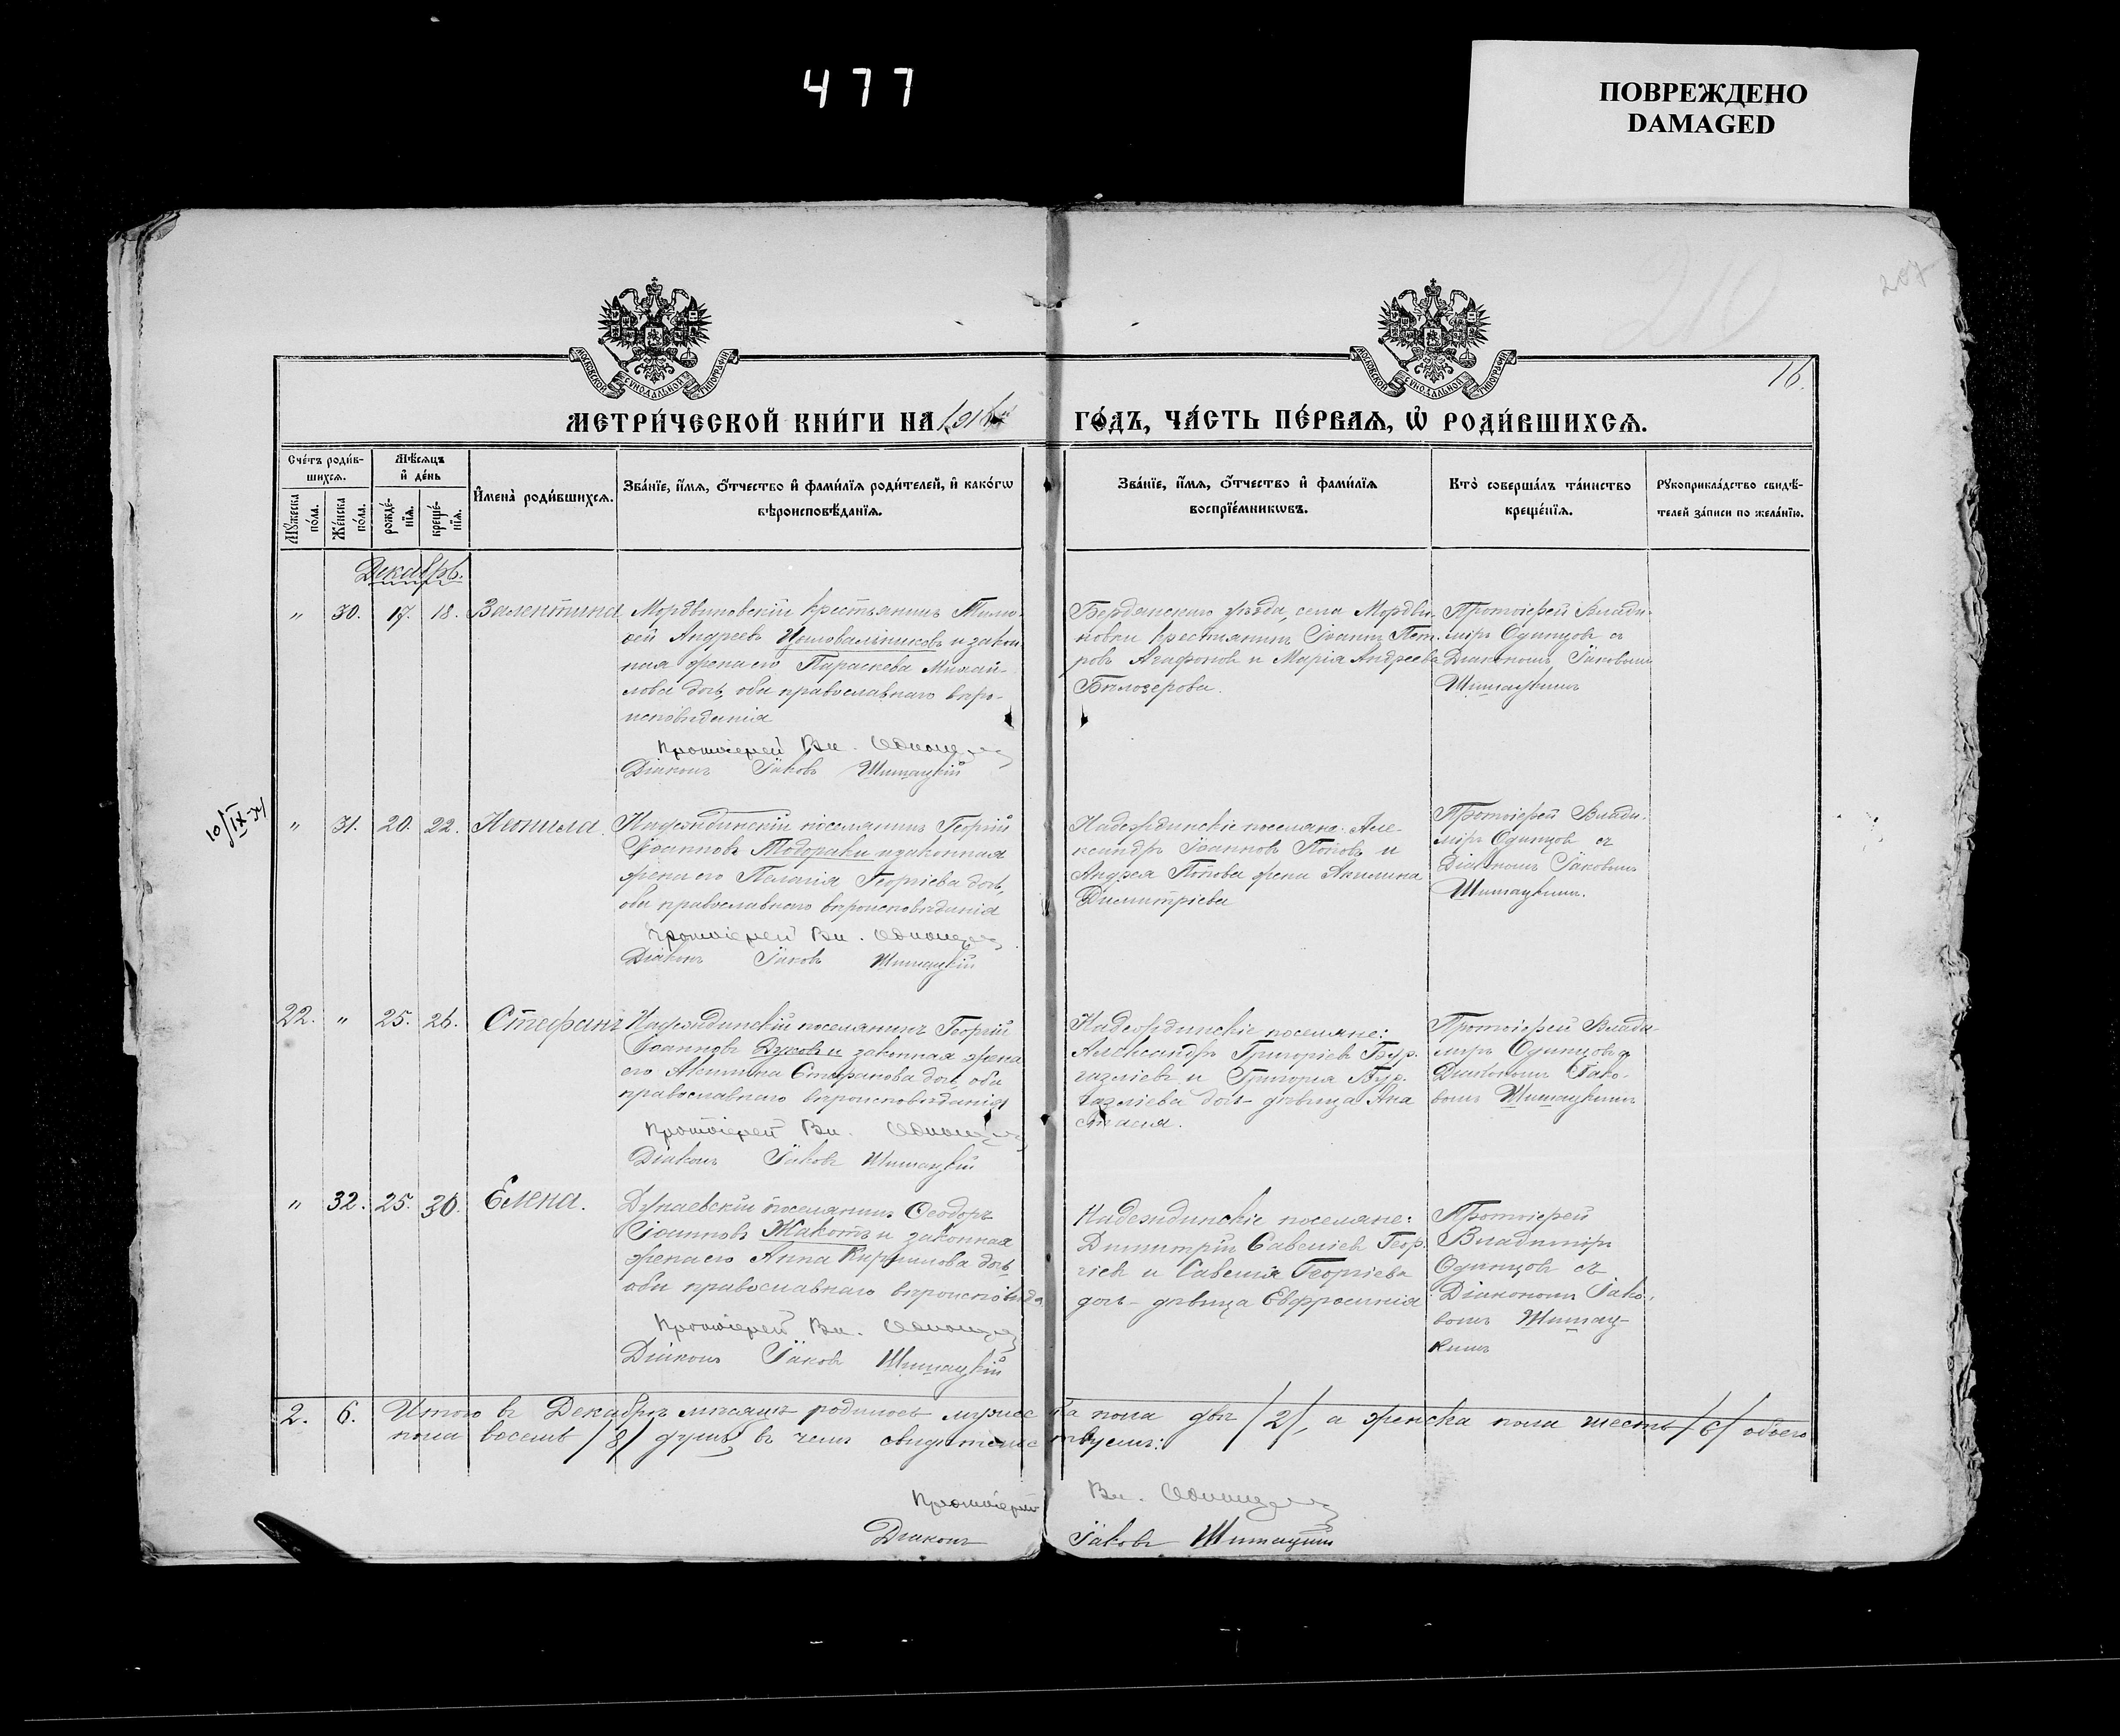 477
ПОВРЕЖДЕНО
DAMAGED
207
210
16.
МОСКОВСКОЙ СУНОДАЛЬНОЙ ТИПОГРАФІИ
МОСКОВСКОЙ СУНОДАЛЬНОЙ ТИПОГРАФІИ
МЕТРИ́ЧЕСКОЙ КНИ́ГИ НА 191 ГО́ДЪ, ЧА́СТЬ ПЕ́РВАѦ, Ѡ РОДИ́ВШИХСѦ.
Сче́тъ роди́в-
шихсѧ.
Мѣ́сѧцъ
и де́нь
Мꙋ́жеска
по́ла.
Же́нска
по́ла.
рожде́-
нїѧ.
креще́-
нїѧ.
И҆мена̀ роди́вшихсѧ.
Зва́нїе, и҆́мѧ, ѻ҆́тчество и҆ фами́лїѧ роди́телей, и҆ како́гѡ
вѣроисповѣ́данїѧ.
Зва́нїе, и҆́мѧ, ѻ҆́тчество и҆ фами́лїѧ
воспрїе́мникѡвъ.
Кто̀ соверша́лъ та́инство
креще́нїѧ.
Рꙋкоприкла́дство свидѣ́-
телей за́писи по жела́нїю.
Декабрь.
" 30. 17. 18. Валентина
Мордвиновскій крестьянинъ Тимо-
ѳей Андреевъ Цыловальниковъ и закон-
ная жена его Параскева Михай-
лова дочь, оби православнаго вѣро-
исповѣданія
Протоіерей Вл. Одинцовъ
Діаконъ Іаковъ Шишацкій
Бердянскаго уѣзда, села Мордви-
новки крестьянинъ Іоаннъ Пет-
ровъ Агафоновъ и Марія Андреева
Бѣлозерова.
Протоіерей Влади-
міръ Одинцовъ съ
Діакономъ Іаковомъ
Шишацкимъ
10/IX 34
" 31. 20. 22. Неонила
Надеждинскій поселянинъ Георгій
Іоанновъ Тодораки и законная
жена его Пелагія Георгіева дочь,
оби православнаго вѣроисповѣданія
Протоіерей Вл. Одинцовъ
Діаконъ Іаковъ Шишацкій
Надеждинскіе поселяне: Але-
ксандръ Іоанновъ Поповъ и
Андрея Попова жена Акилина
Димитріева
Протоіерей Влади-
міръ Одинцовъ съ
Діакономъ Іаковомъ
Шишацкимъ.
22. " 25. 26. Стефанъ
Надеждинскій поселянинъ Георгій
Іоанновъ Духовъ и законная жена
его Стефанова дочь, оби
православнаго вѣроисповѣданія
Протоіерей Вл. Одинцовъ
Діаконъ Іаковъ Шишацкій
Надеждинскіе поселяне:
Александръ Григоріевъ Бур-
газліевъ и Григорія Бур-
газліева дочь - дѣвица Ана
стасія.
Протоіерей Влади-
міръ Одинцовъ съ
Діакономъ Іако-
вомъ Шишацкимъ
" 32. 25. 30. Елена.
Дунаевскій поселянинъ Ѳеодоръ
Іоанновъ Жакотъ и законная
жена его Анна Кириллова дочь
оби православнаго вѣроисповѣда
Протоіерей Вл. Одинцовъ
Діаконъ Іаковъ Шишацкій
Надеждинскіе поселяне:
Димитрій Савеліевъ Геор-
гіевъ и Савелія Георгіева
дочь - дѣвица Евфросинія
Протоіерей
Владиміръ
Одинцовъ съ
Діакономъ Іако-
вомъ Шишац-
кимъ
2. 6. Итого въ Декабрѣ мѣсяцѣ родилось мужеска пола два /2/, а женска пола шесть /6/ обоего
пола восемь /8/ душъ, въ чемъ свидѣтельствуемъ:
Протоіерей Вл. Одинцовъ
Діаконъ Іаковъ Шишацкій